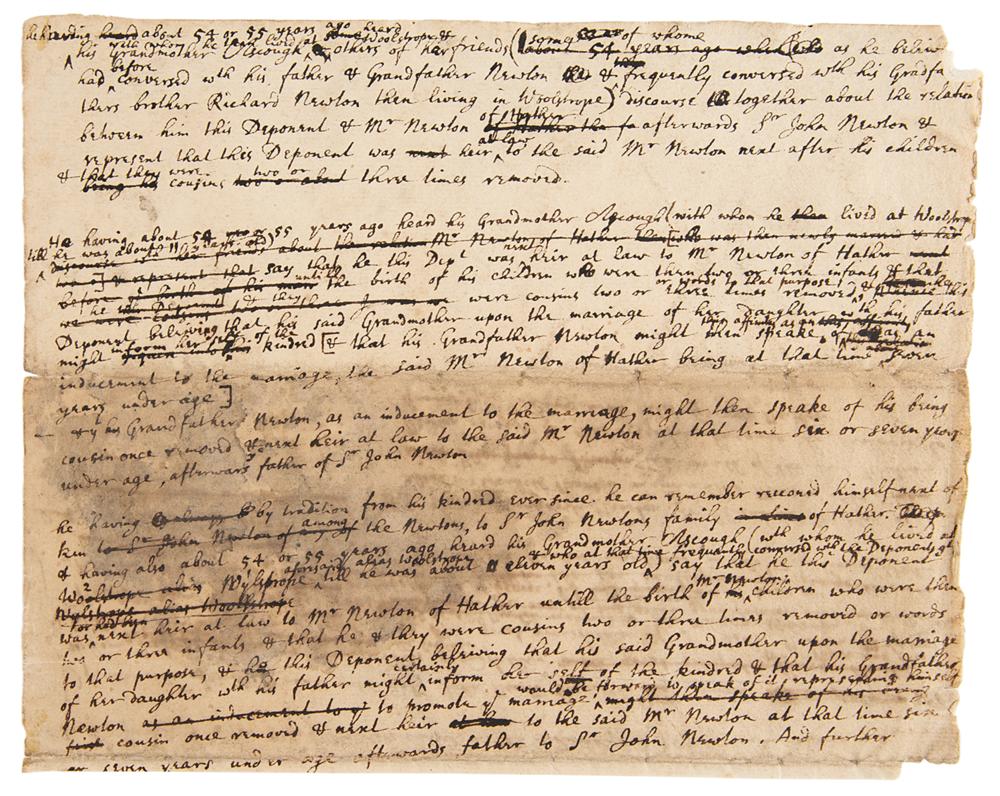 he having heard about 54 or 55 years ago heard
with whom he then lived at Woolstrope &
his Grandmother Ascough & others of her friends (some of whome
about 54 years ago when as he beleiv
before
had conversed wth his father & Grandfather Newton & frequently conversed wth his Grandfa
thers brother Richard Newton then living in Woolstrope) discourse together about the relation
of Hather
between him this Deponent & Mr Newton of Hather the fa afterwards Sr John Newton &
at law
represent that this Deponent was next heir to the said Mr Newton next after his children
& that they were two or
being his cousins two o about three times removed.
He having about 54 or 55 years ago heard his Grandmother Ascough (with whom he then lived at Woolstrope
till he was about 11 years old) about the relation Mr Newton of Hather [who was then newly married & had
discourse wth her friends next
& represent that say that he this Dept was heir at law to Mr Newton of Hather
untill
before the birth of his the birth of his children who were then two or three infants & that
or words to that purpose,
he & they were cousins two or three times removed, & this
Deponent beleiving that his said Grandmother upon the marriage of her daughter wth his father
might inform her self of the kindred [& that his Grandfather Newton might then speake of as an
inducement to the marriage, the said Mr Newton of Hather being at that time seven
years under age]
& yt his Grandfather Newton, as an inducement to the marriage, might then speake of his being
cousin once removed & next heir at law to the said Mr Newton at that time six or seven years
under age, afterwards father of Sr John Newton
he having by tradition from his kindred ever since he can remember reccond himself next of
among
kin to Sr John Newton of any of the Newtons, to Sr John Newtons family in line of Hather.
& having also about 54 or 55 years ago heard his Grandmother Ascough (wth whom he lived at
& who at that time frequently conversed wth the Deponents
Woolstrope alias Wylstrope till he was about eleven years old) say that he this Deponent
Wulstrope alias Woolstrope
or had been Mr Newton's
was next heir at law to Mr Newton of Hather untill the birth of his children who were then
two or three infants & that he & they were cousins two or three times removed or words
to that purpose, & he this Deponent beleiving that his said Grandmother upon the marriage
certainly
of her daughter wth his father might inform her self of the kindred & that his Grandfather
would be forward to speak of it, representing himself
Newton as an inducement to ye to promote ye marriage might then speake of his being
first cousin once removed & next heir at law to the said Mr Newton at that time six
or seven years under age afterwards father to Sr John Newton. And further